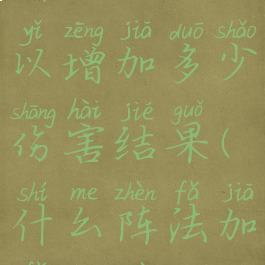 yǐ zēng jiā duō shǎo
以增加多少
shāng hài jié guǒ
伤害结果(
shí me zhèn fǎ jiā
什么阵法加